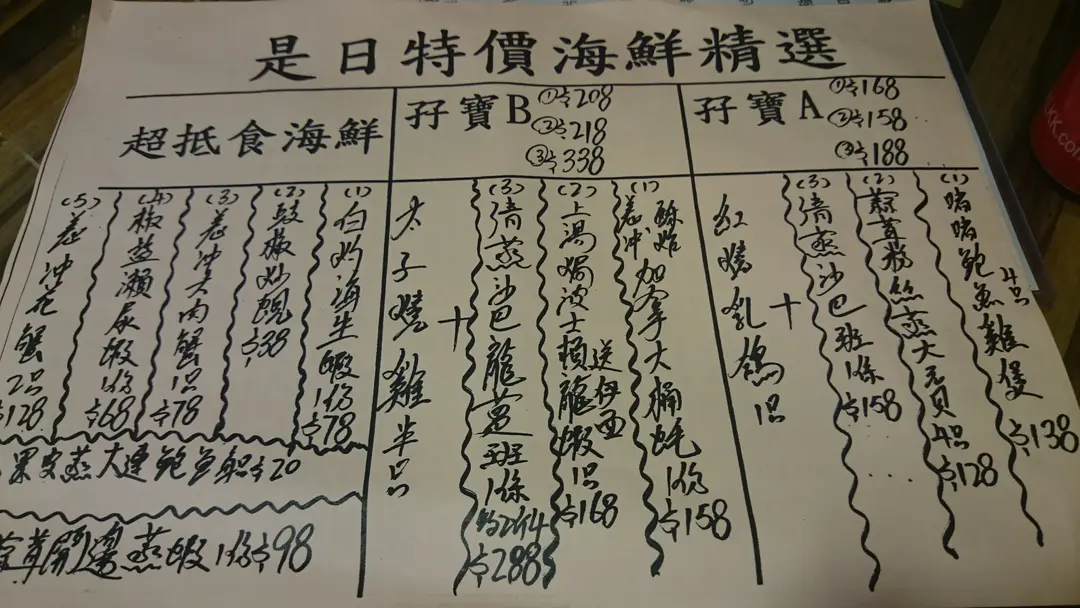 是日特價海鮮精選
孖寶A
①$168
②$158
③$188
(1)啫啫鮑魚雞煲 4只 $138
(2)蒜茸粉絲蒸大元貝 4只 $128
(3)清蒸沙巴班1條 $158
十
紅燒乳鴿1只
孖寶B
①$208
②$218
③$338
(1)薑冲 加拿大桶蚝1份 $158
(2)上湯焗波士頓龍蝦1只 $168
送伊面
(3)清蒸沙巴龍躉班1條 約2斤4 $288
十
太子燒雞半只
超抵食海鮮
(1)白灼海生蝦1份 $78
(2)豉椒炒蜆 $38
(3)薑冲大肉蟹1只 $78
(4)椒鹽瀨尿蝦1份 $68
(5)薑冲花蟹2只 $128
果皮蒸大連鮑魚 $20
開邊蒸蝦1份 $98
KK.com